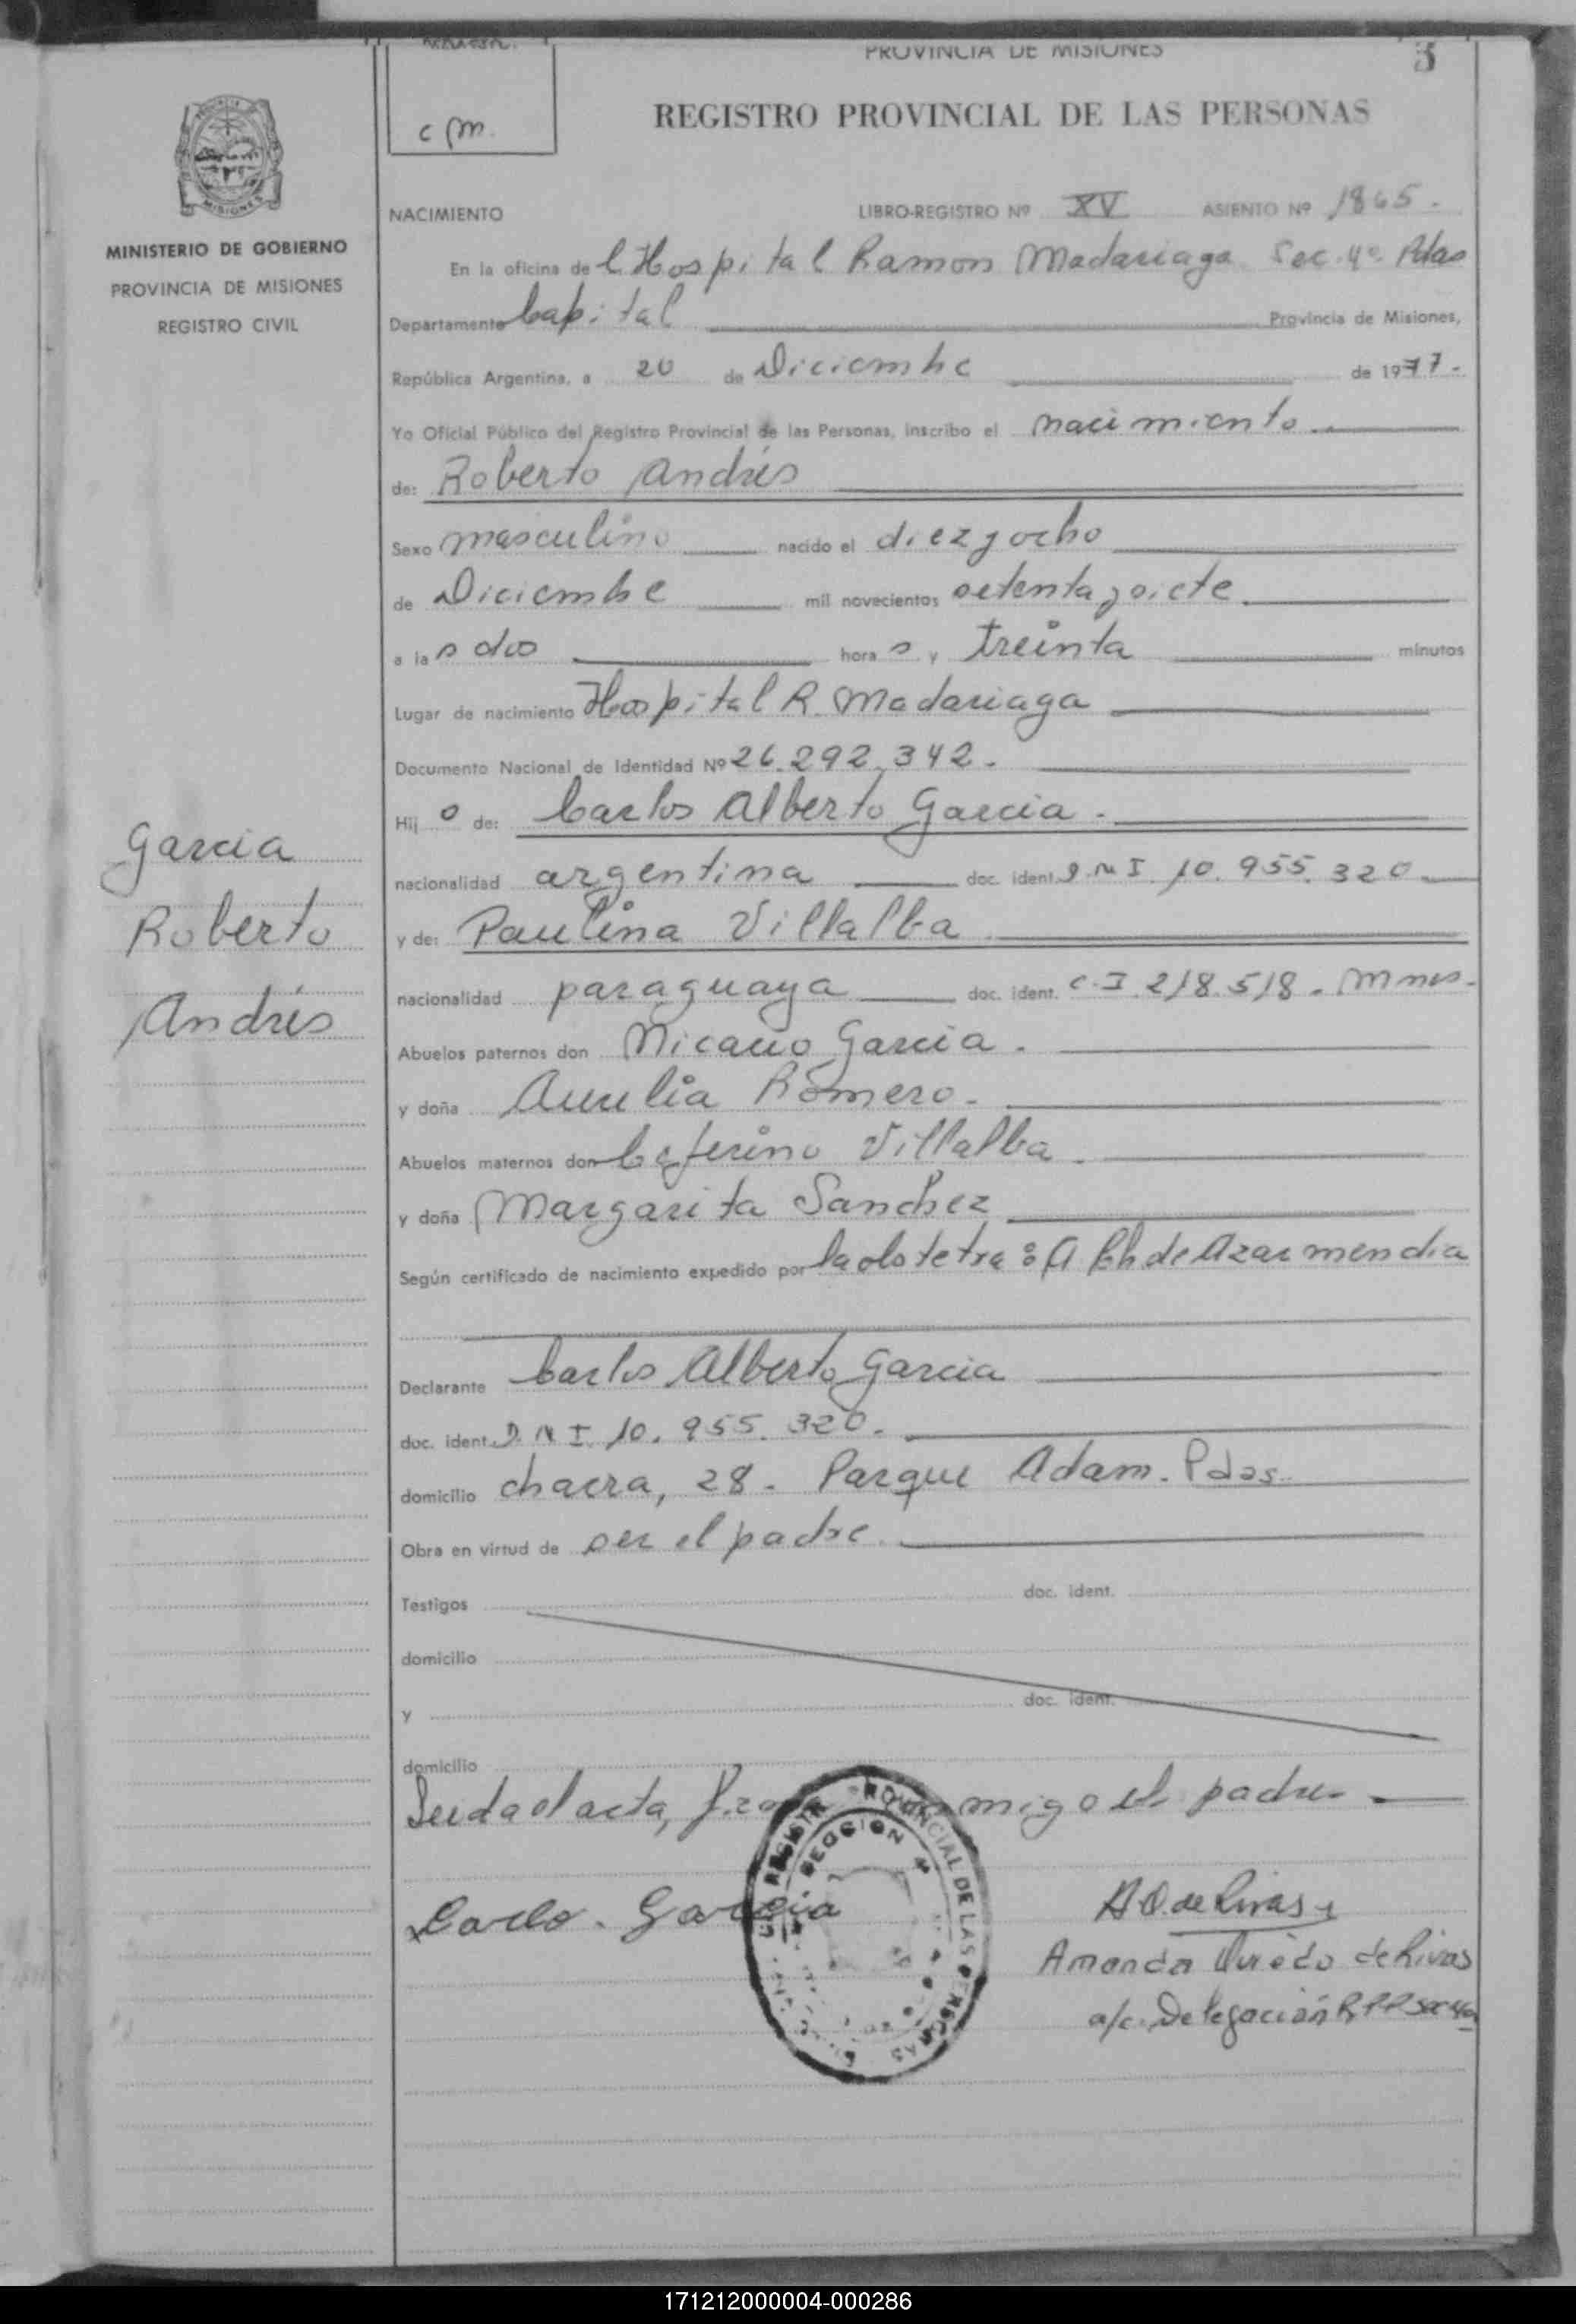 PROVINCIA DE MISIONES
3
c m.
REGISTRO PROVINCIAL DE LAS PERSONAS
MISIONES
MINISTERIO DE GOBIERNO
PROVINCIA DE MISIONES
REGISTRO CIVIL
Garcia
Roberto
Andrés
NACIMIENTO LIBRO-REGISTRO Nº XV ASIENTO Nº 1865.
En la oficina de l Hospital Ramon Madariaga Sec. 4º Pdas
Departamento Capital Provincia de Misiones,
República Argentina, a 20 de Diciembre de 1977.-
Yo Oficial Público del Registro Provincial de las Personas, inscribo el nacimiento
de: Roberto Andrés
Sexo masculino nacido el diez y ocho
de Diciembre mil novecientos setenta y siete
a la s dos hora s y treinta minutos
Lugar de nacimiento Hospital R. Madariaga
Documento Nacional de Identidad Nº 26.292.342.
Hij o de: Carlos Alberto Garcia.
nacionalidad argentina doc. ident. D.N.I. 10.955.320
y de: Paulina Villalba
nacionalidad paraguaya doc. ident. C.I. 218.518. Mnes.
Abuelos paternos don Nicacio Garcia.
y doña Aurelia Romero.
Abuelos maternos don Ceferino Villalba.
y doña Margarita Sanchez
Según certificado de nacimiento expedido por la obstetra: A de Azarmendia
Declarante Carlos Alberto Garcia
doc. ident. D.N.I. 10.955.320.
domicilio chacra, 28. Parque Adam. Pdas.
Obra en virtud de ser el padre.
Testigos doc. ident.
domicilio
y doc. ident.
domicilio
Leida el acta, migo el padre.
Carlo. Garcia
A O. de Rivas
Amanda Oviedo de Rivas
a/c. Delegación R.P.P. Sec 4a
REGISTRO PROVINCIAL DE LAS PERSONAS
SECCION 4ª
171212000004-000286